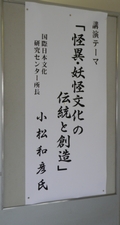 講演テーマ
「怪異・妖怪文化の
伝統と創造」
国際日本文化
研究センター所長
小松和彦氏